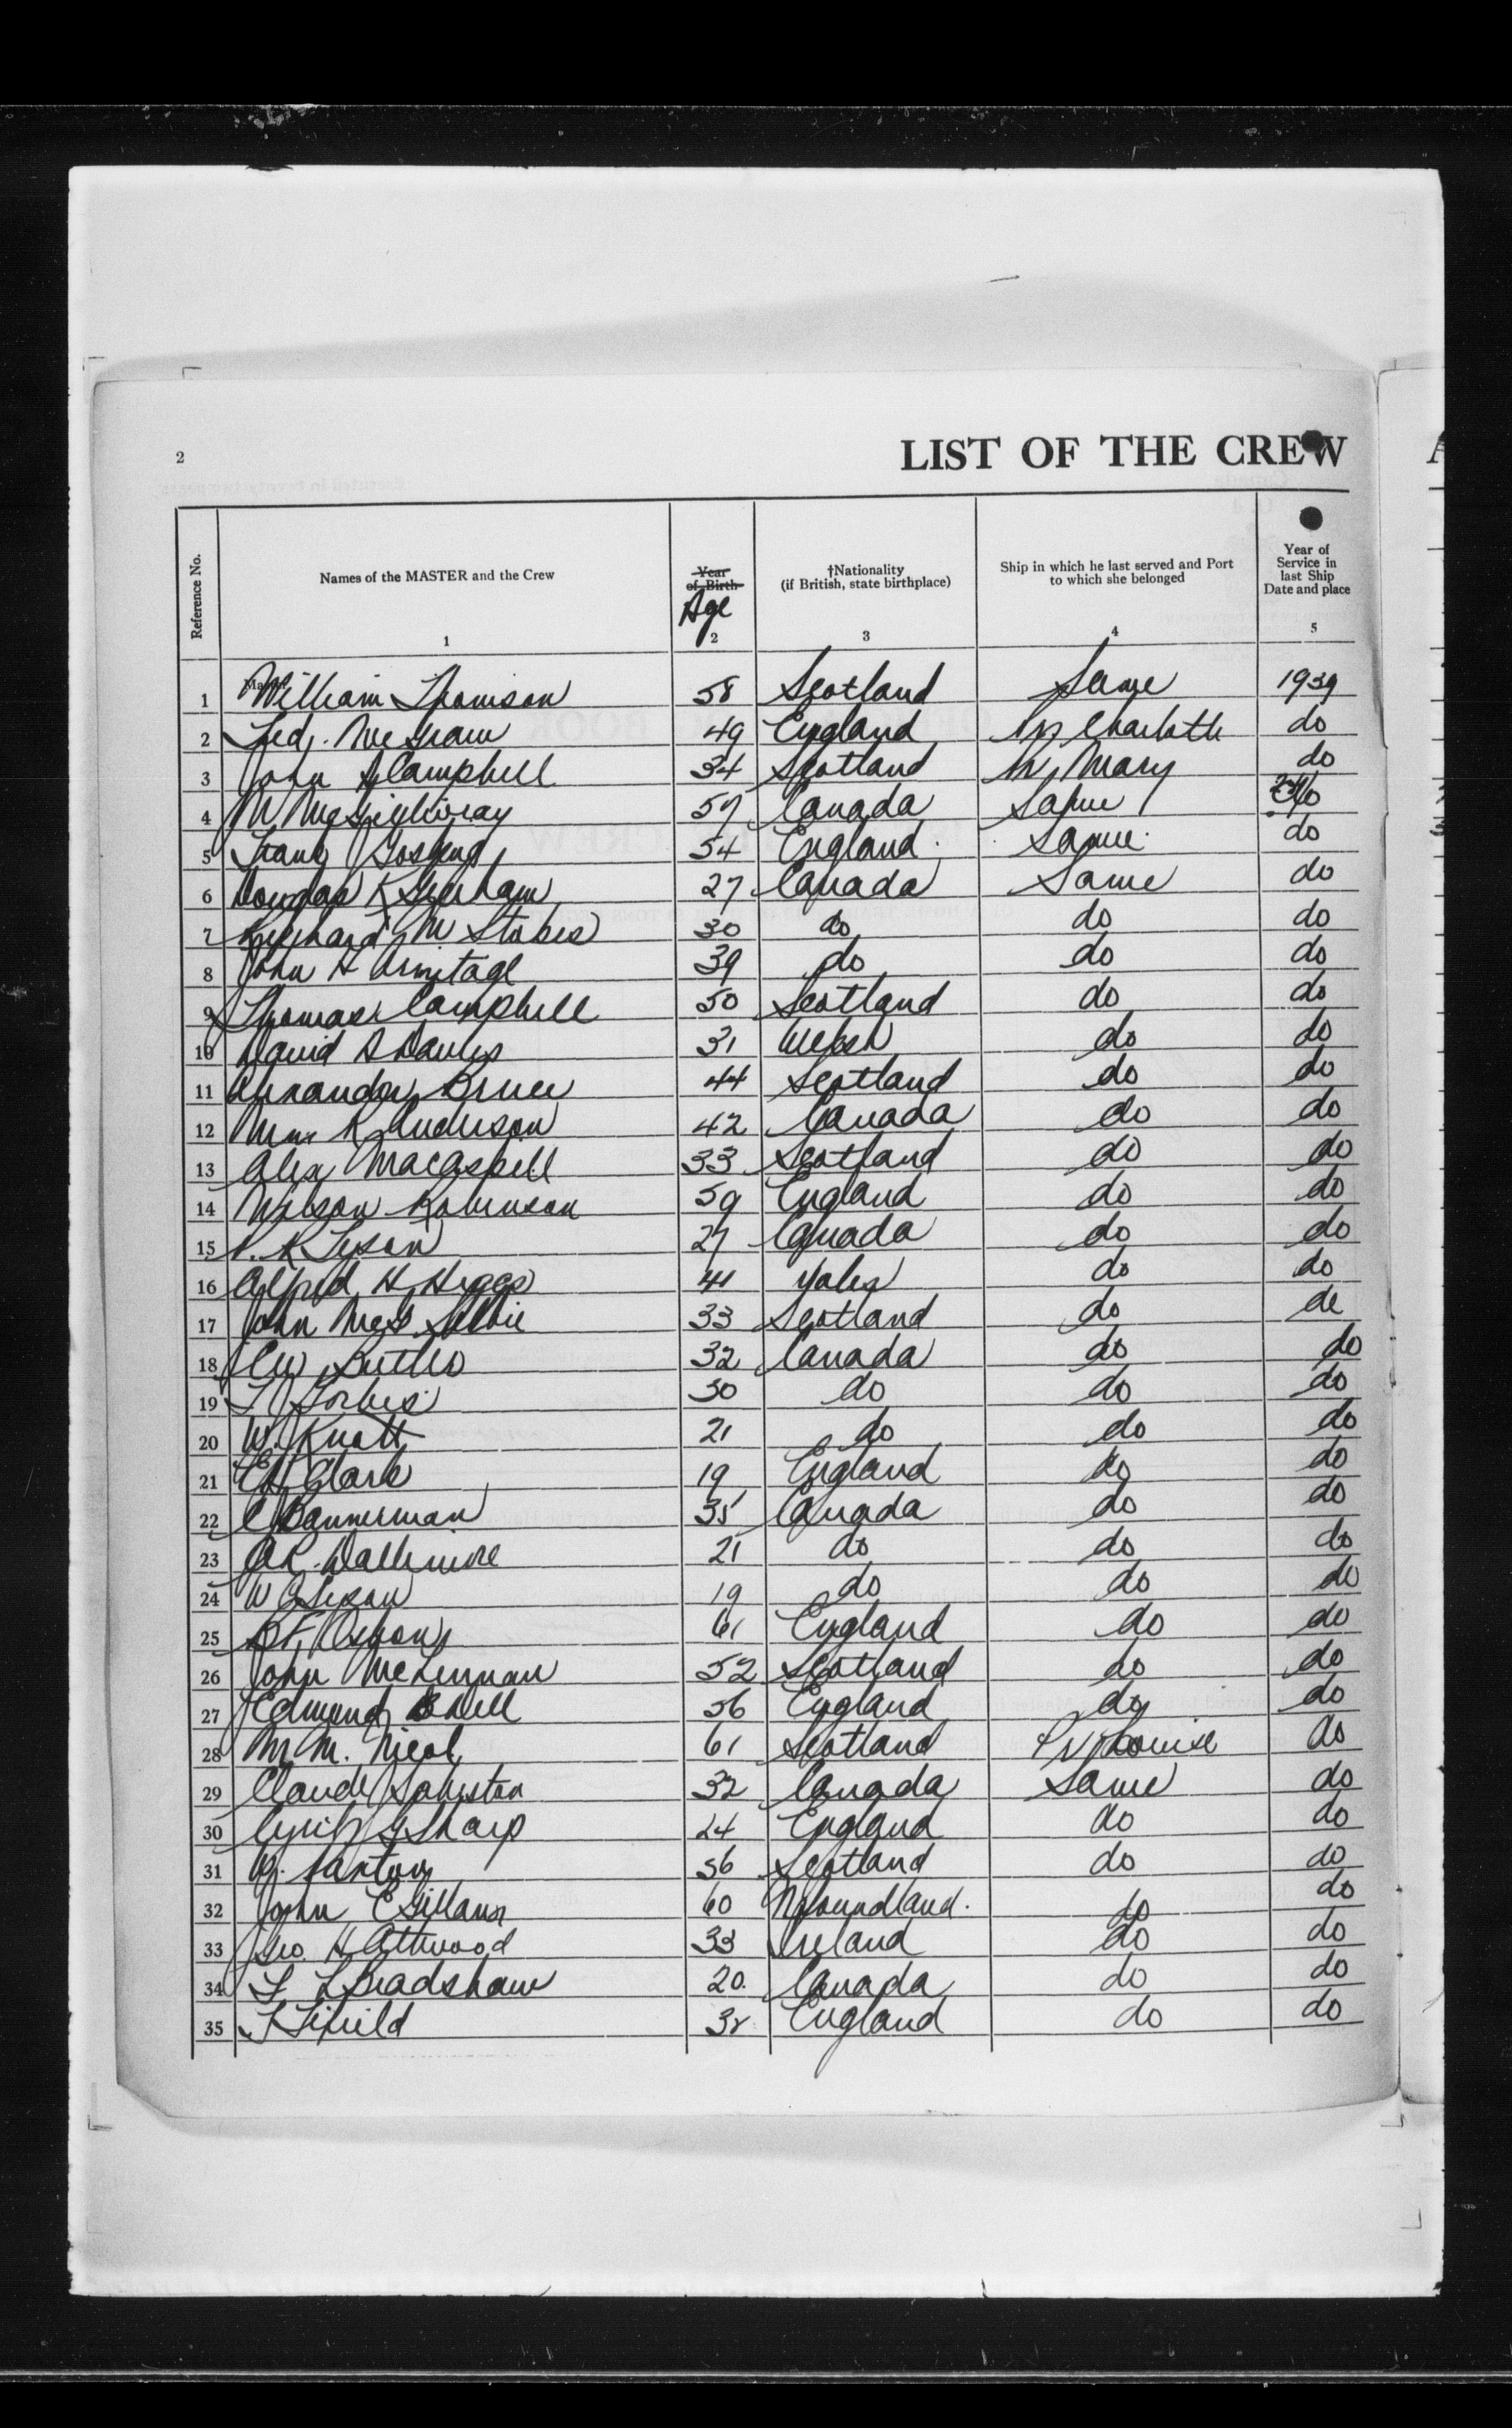 2
LIST OF THE CREW
Reference No.
Names of the MASTER and the Crew
1
Year of Birth
Age
2
†Nationality
(if British, state birthplace)
3
Ship in which he last served and Port
to which she belonged
4
Year of
Service in
last Ship
Date and place
5
1 William Thomson 58 Scotland Same 1939
2 Fred. McGraw 49 England Charlotte do
3 John Campbell 34 Scotland Mary do
4 M McGillivray 59 Canada Same
5 Frank Gosling 54 England Same do
6 Douglas K Gresham 27 Canada Same do
7 M Stokes 30 do do do
8 John H Armitage 39 do do do
9 Thomas Campbell 50 Scotland do do
10 David Davies 31 Welsh do do
11 Alexander Bruce 44 Scotland do do
12 Wm R Anderson 42 Canada do do
13 Alex MacAskell 33 Scotland do do
14 Wilson Robinson 59 England do do
15 Canada do do
16 Alfred H Higgs 41 Wales do do
17 John 33 Scotland do do
18 32 Canada do do
19 Forbes 30 do do do
20 W. Knott 21 do do do
21 Clark 19 England do do
22 C Bannerman 35 Canada do do
23 21 do do do
24 W 19 do do do
25 61 England do do
26 John McLennan 52 Scotland do do
27 Edmund 56 England do do
28 M M. Nicol 61 Scotland Louise do
29 Claude Johnston 32 Canada Same do
30 Cyril G Sharp 24 England do do
31 56 Scotland do do
32 John E Gillam 60 Nfoundland. do do
33 Geo. H Attwood 33 Ireland do do
34 F L Bradshaw 20. Canada do do
35 Fifield England do do